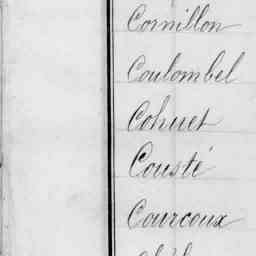 Cornillon
Coulombel
Cohuet
Cousté
Courcoux